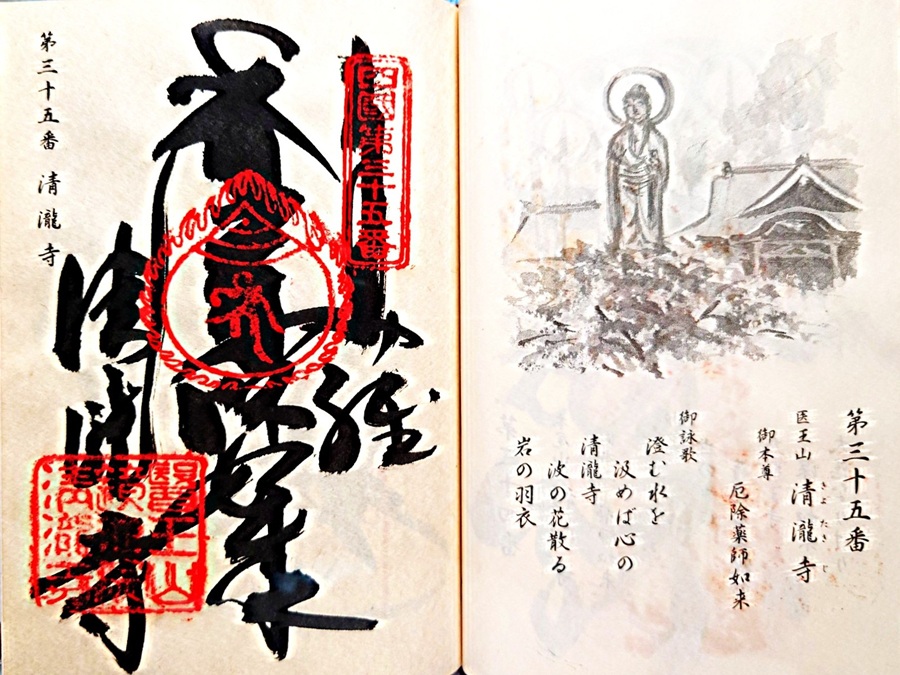 第三十五番
医王山 清瀧寺
きよ たき じ
御本尊
厄除薬師如来
御詠歌
澄む水を
汲めば心の
清瀧寺
波の花散る
岩の羽衣
四國第三十五番
如来
清瀧寺
第三十五番 清瀧寺